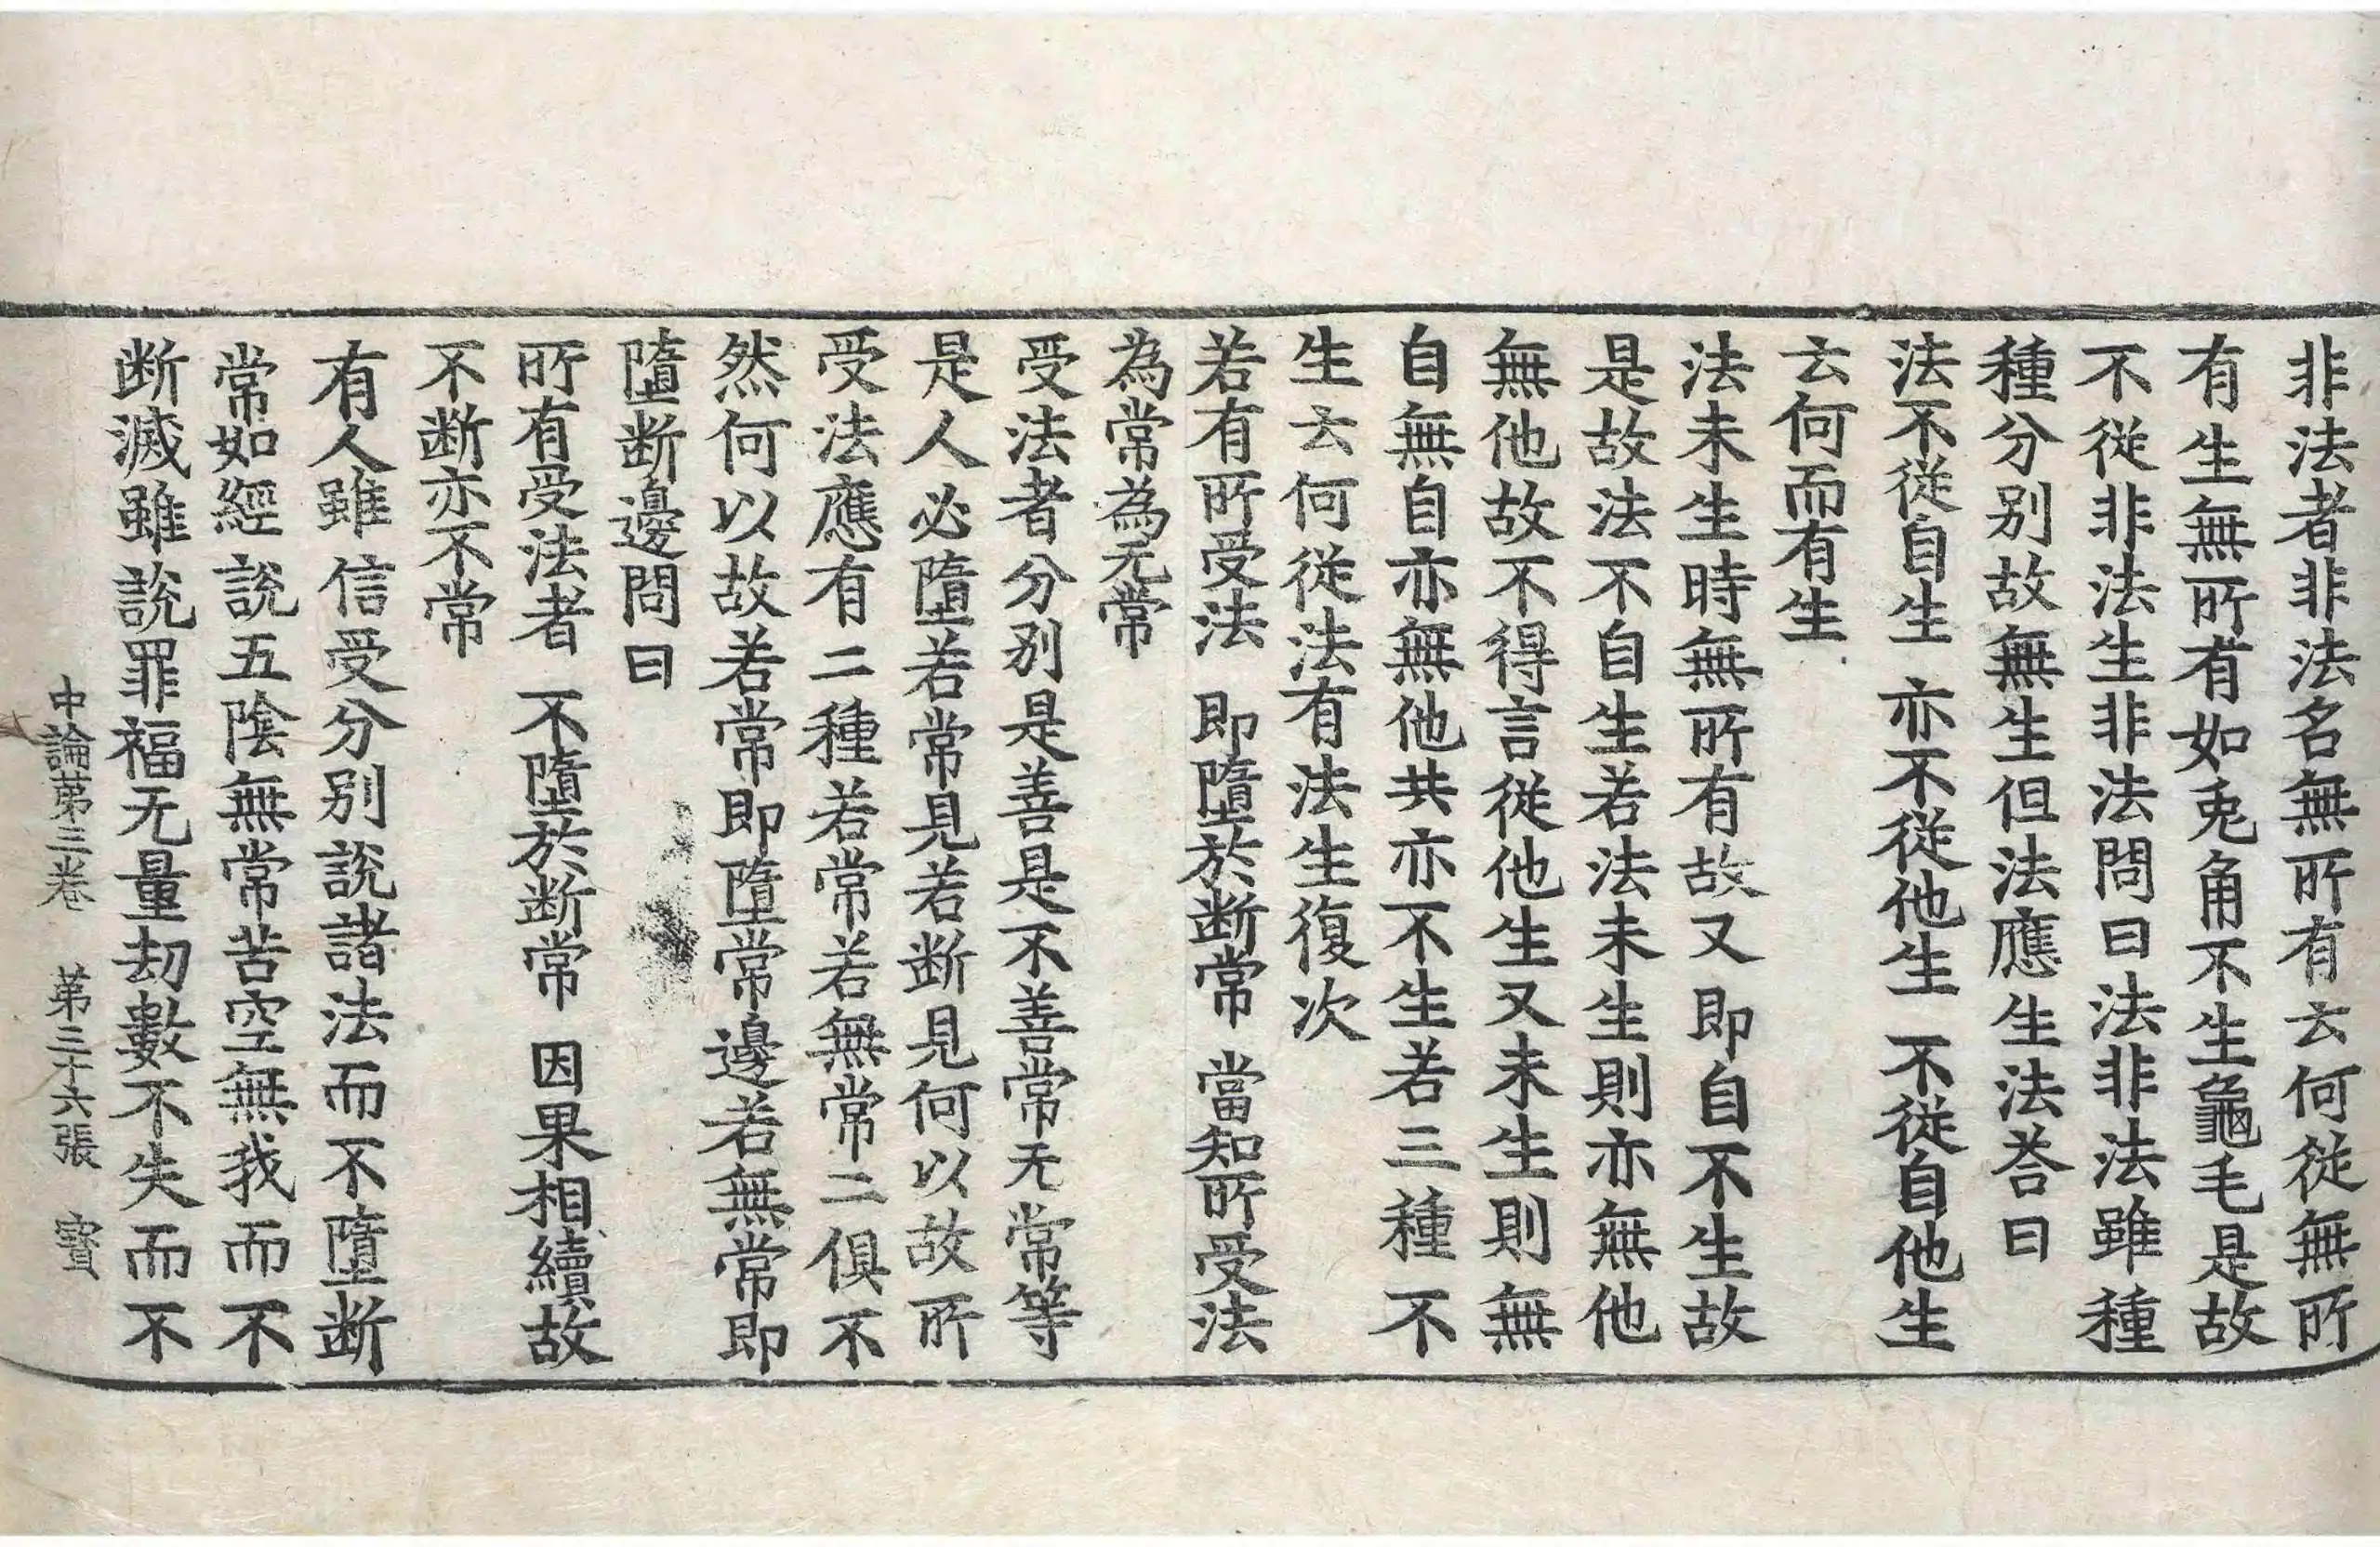 非法者非法名無所有云何從無所
有生無所有如兎角不生龜毛是故
不從非法生非法問曰法非法雖種
種分別故無生但法應生法荅曰
法不從自生 亦不從他生 不從自他生
云何而有生
法未生時無所有故又即自不生故
是故法不自生若法未生則亦無他
無他故不得言從他生又未生則無
自無自亦無他共亦不生若三種不
生云何從法有法生復次
若有所受法 即墮於断常 當知所受法
為常為无常
受法者分別是善是不善常无常等
是人必墮若常見若断見何以故所
受法應有二種若常若無常二俱不
然何以故若常即墮常邊若無常即
墮断邊問曰
所有受法者 不墮於断常 因果相續故
不断亦不常
有人雖信受分別說諸法而不墮断
常如經說五陰無常苦空無我而不
断滅雖說罪福无量劫數不失而不
中論苐三卷 苐三十六張 寶